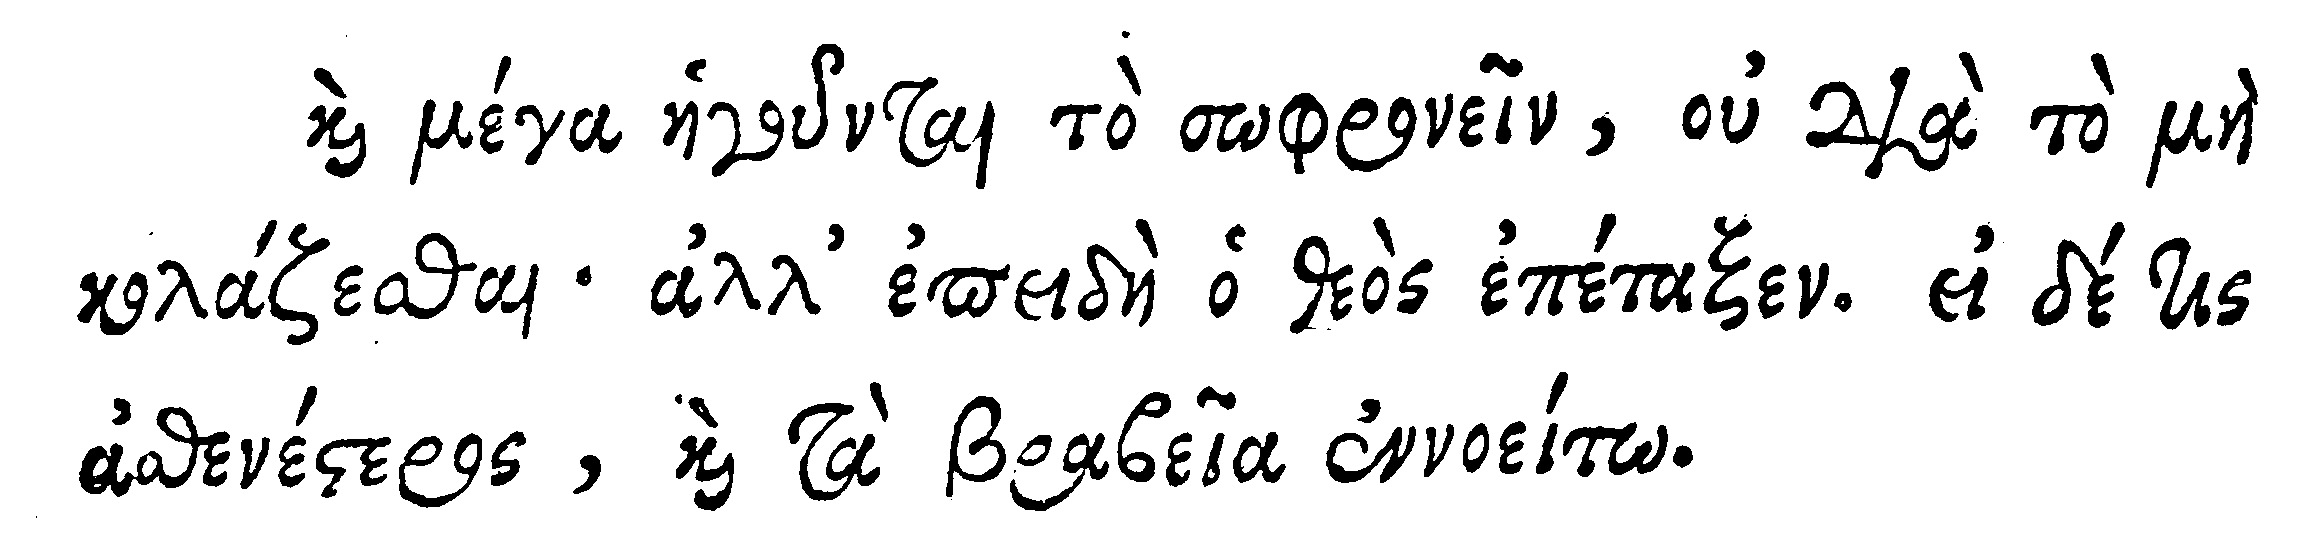 καὶ μέγα ἡγοῦνται τὸ σωφρονεῖν, οὐ διὰ τὸ μὴ
κολάζεσθαι· ἀλλ’ ἐπειδὴ ὁ θεὸς ἐπέταξεν. εἰ δέ τις
ἀσθενέστερος, καὶ τὰ βραβεῖα ἐννοείτω.